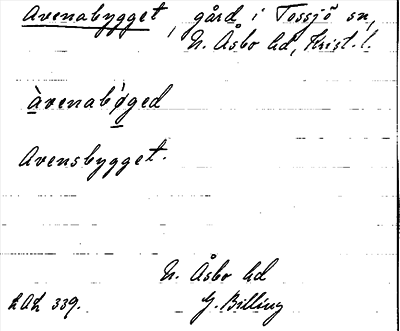 Avenabygget, gård i Tossjö sn,
N. Åsbo hd, Krist. l.
àvenabø̀ged
Avensbygget.
N. Åsbo hd
LAL 339.
G. Billing